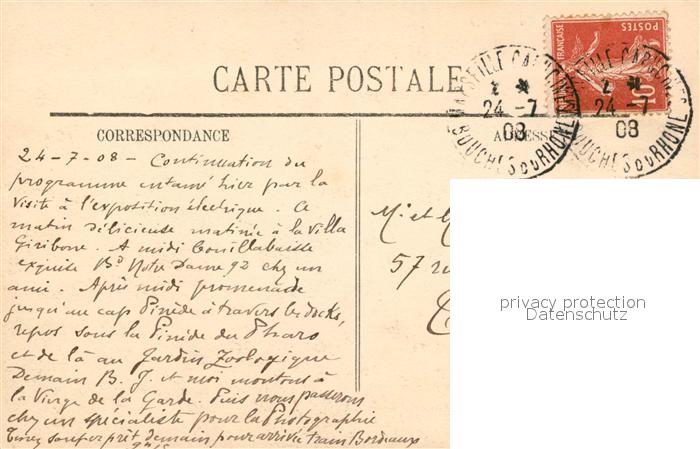 CARTE POSTALE
CORRESPONDANCE
ADRESSE
FRANÇAISE
POSTES
10
MARSEILLE CAPUCINES
24 -7
08
BOUCHES DU RHONE
24 -7
08
BOUCHES DU RHONE
24-7-08 - Continuation du
programme entamé hier par la
visite à l'exposition électrique. Ce
matin délicieuse matinée à la villa
Giribone. A midi bouillabaisse
exquise Bd Notre Dame 92 chez un
ami. Après midi promenade
jusqu'au cap Pinède à travers les docks,
repos sous la Pinède du Pharo
et de là au Jardin Zoologique
Demain B. J. et moi montons à
la Vierge de la Garde. Puis nous passerons
chez un spécialiste pour la Photographie
prêt demain pour arrivée train Bordeaux
M. et
57 ru
privacy protection
Datenschutz